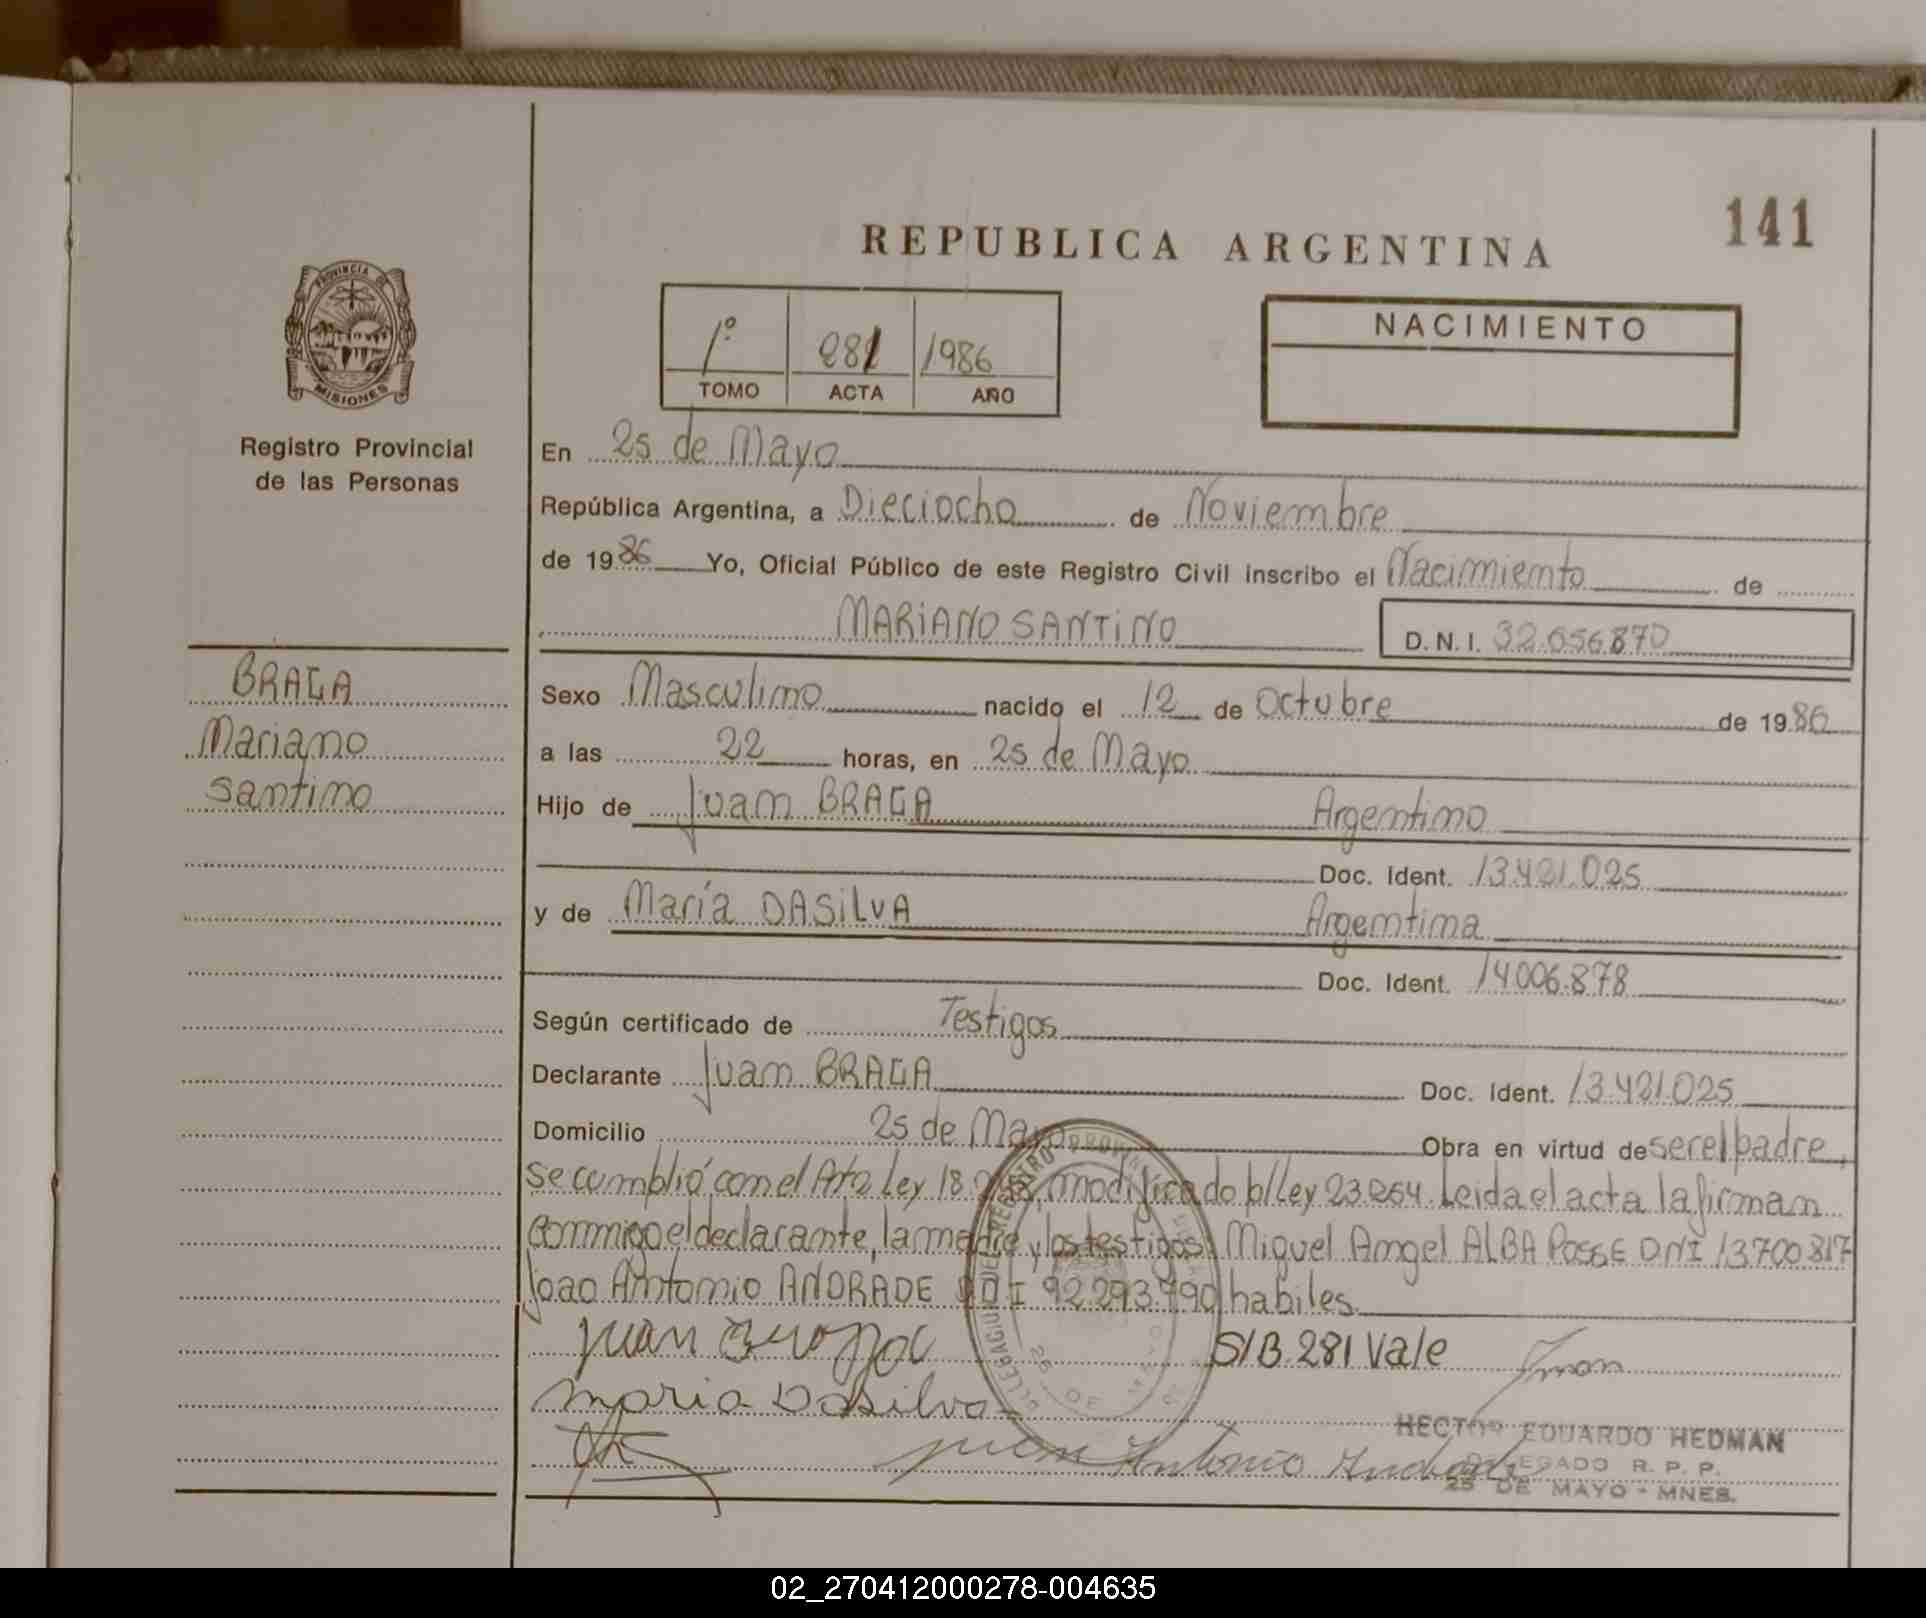 141
REPUBLICA ARGENTINA
PROVINCIA DE
MISIONES
Registro Provincial
de las Personas
1º 281 1986
TOMO ACTA AÑO
NACIMIENTO
En 25 de Mayo
República Argentina, a Dieciocho de Noviembre
de 1986 Yo, Oficial Público de este Registro Civil inscribo el Nacimiento de
MARIANO SANTINO D.N.I. 32.656.870
BRAGA
Mariano
Santino
Sexo Masculino nacido el 12 de Octubre de 1986
a las 22 horas, en 25 de Mayo
Hijo de Juan BRAGA Argentino
Doc. Ident. 13.421.025
y de María DASILVA Argentina
Doc. Ident. 14006.878
Según certificado de Testigos
Declarante Juan BRAGA Doc. Ident. 13.421.025
Domicilio 25 de Mayo Obra en virtud de ser el padre,
se cumplió con el Art 2 Ley 18. modificado p/Ley 23.264. Leida el acta la firman
conmigo el declarante, la madre y los testigos Miguel Angel ALBA POSSE DNI 13700817
Joao Antonio ANDRADE DNI 92.293.490 habiles.
Juan S/B. 281 Vale
Maria Dasilva
Antonio
HECTOR EDUARDO HEDMAN
DELEGADO R. P. P.
25 DE MAYO - MNES.
02_270412000278-004635